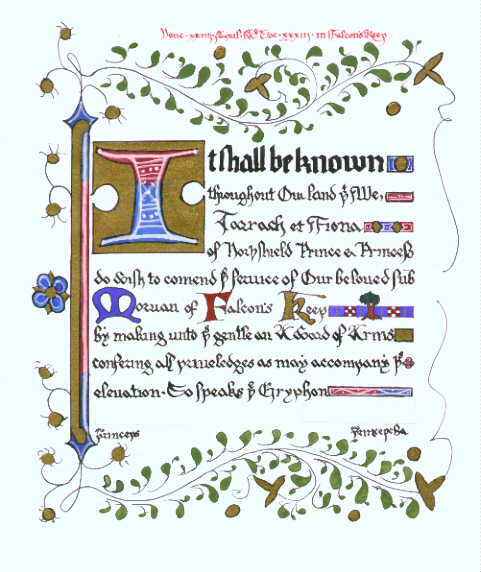 in Falcon's Keep
It shall be known
throughout Our land þͭ We,
Tarrach et Fiona
of Northshield Prince & Princess
do wish to comend þͤ service of Our beloved sub
Morvan of Falcon's Keep
by making unto þͤ gentle an Award of Arms
confering all priveledges as may accompany þͤ
elevation. So speaks þͤ Gryphon
princeps